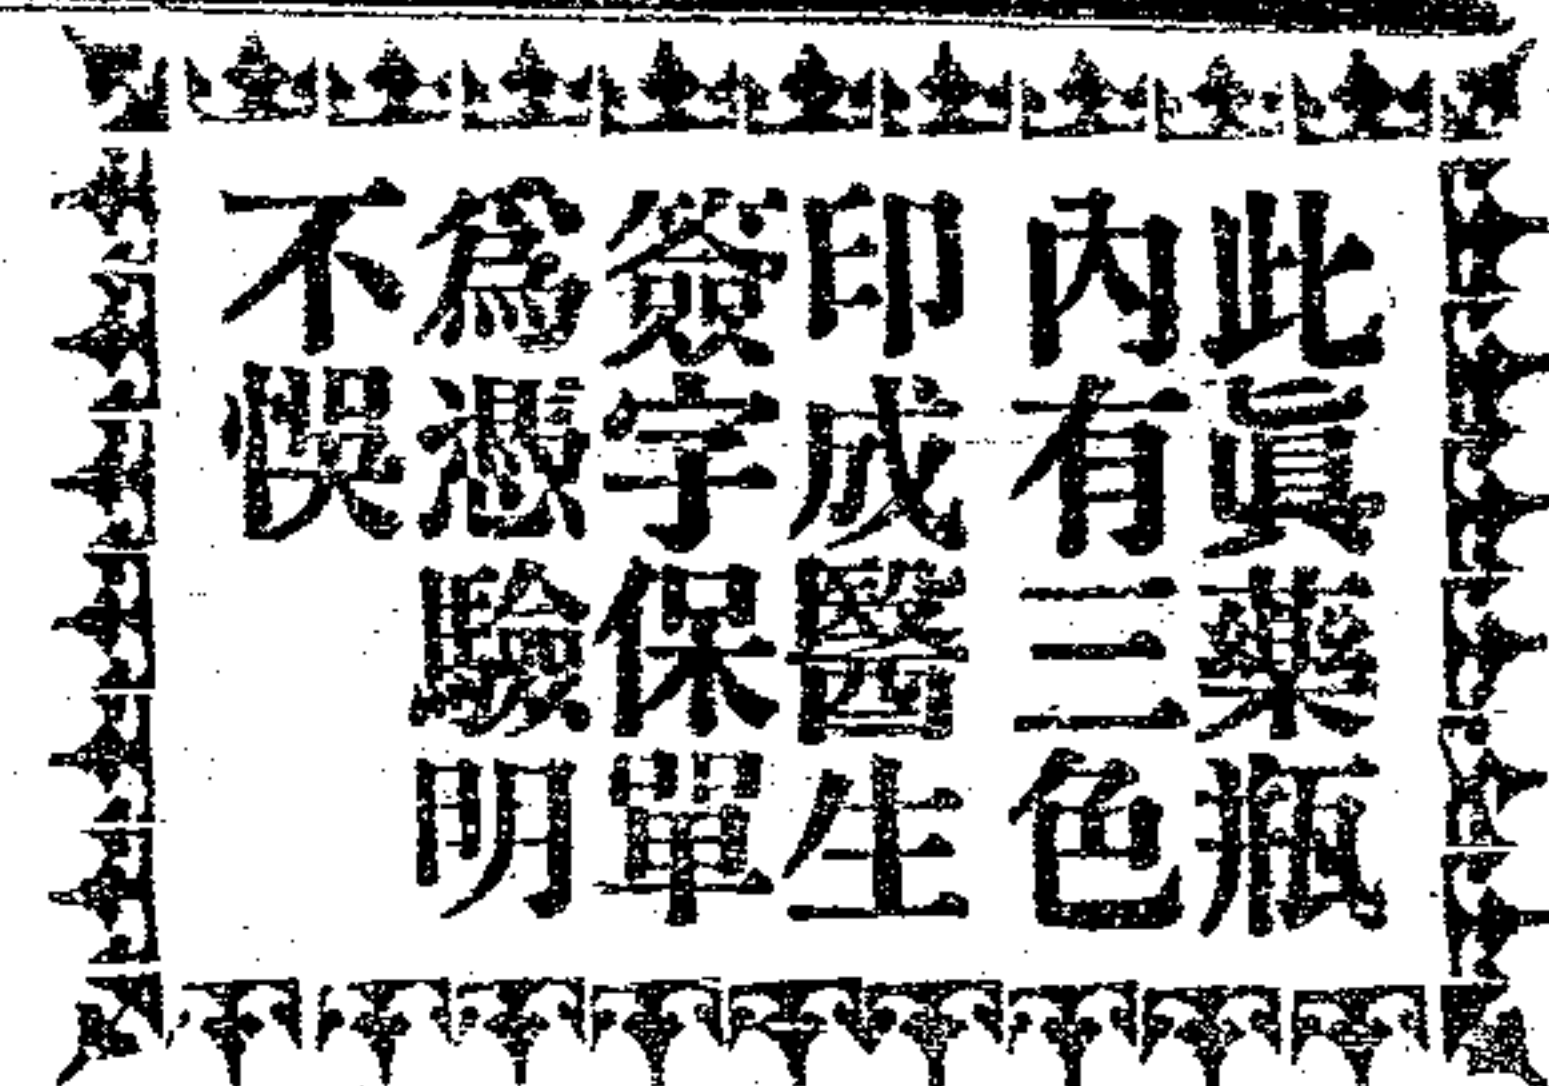 此眞藥瓶
內有三色
印成醫生
簽字保單
爲憑驗明
不悞